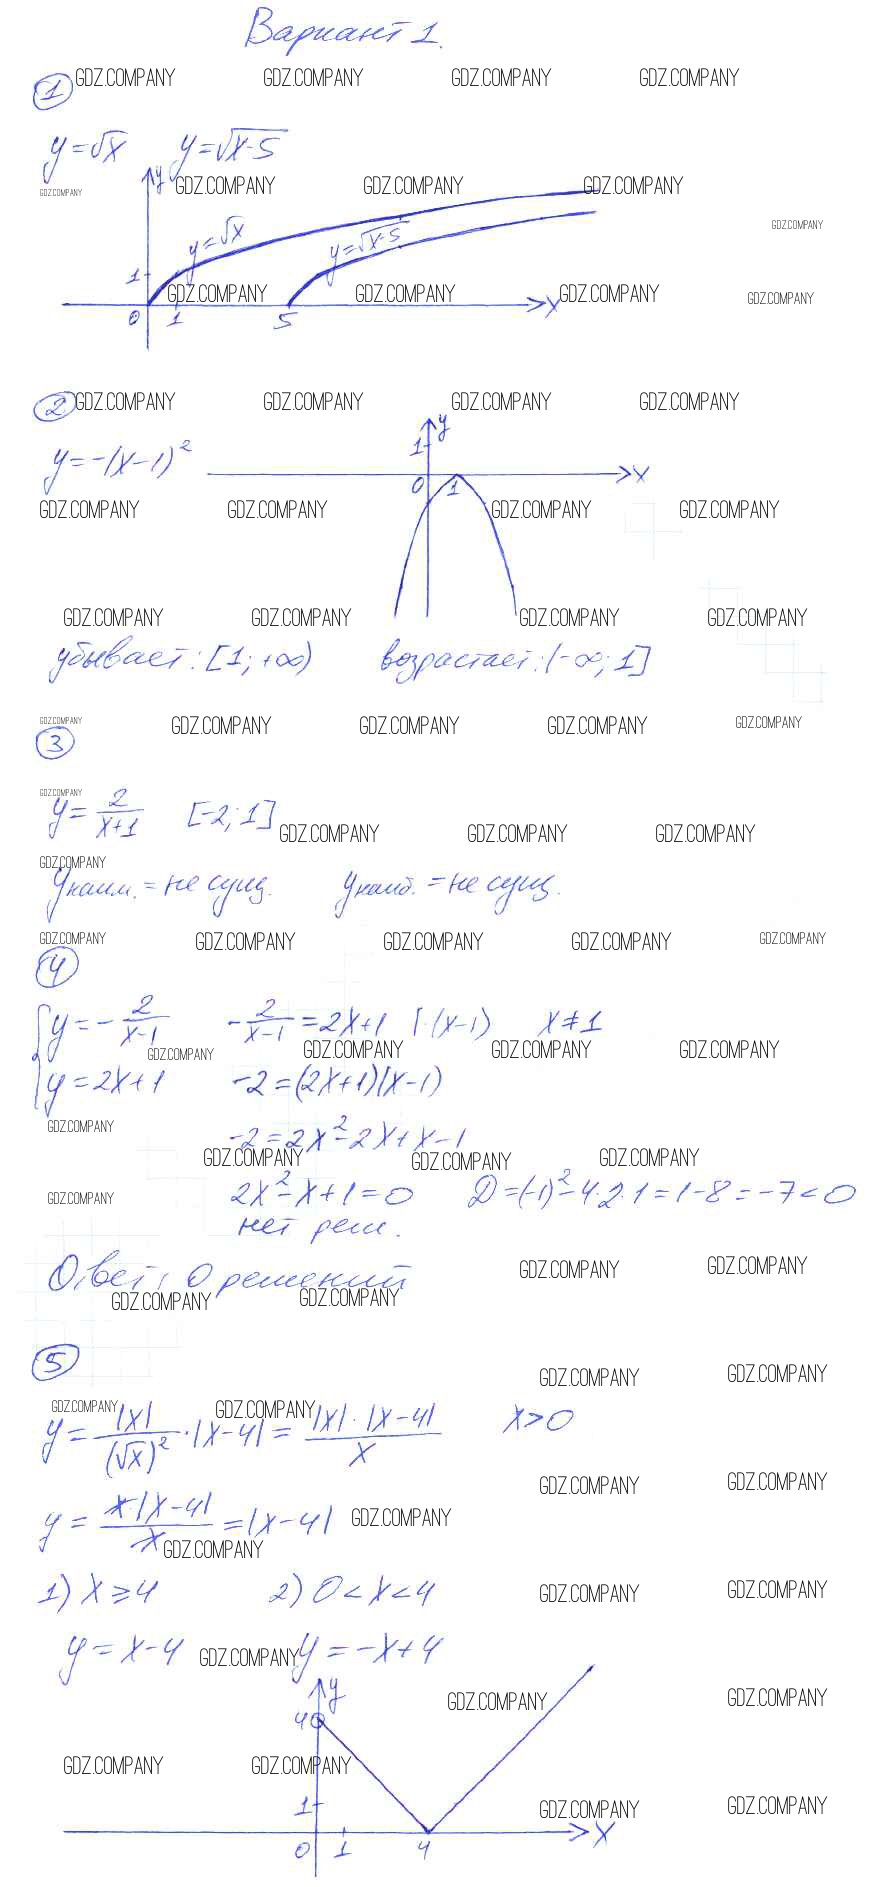 Вариант 1.
GDZ.COMPANY GDZ.COMPANY GDZ.COMPANY GDZ.COMPANY
1
y=√x y=√x-5
GDZ.COMPANY y GDZ.COMPANY GDZ.COMPANY GDZ.COMPANY
y=√x y=√x-5 GDZ.COMPANY
1
GDZ.COMPANY GDZ.COMPANY GDZ.COMPANY x GDZ.COMPANY
0 1 5
2 GDZ.COMPANY GDZ.COMPANY GDZ.COMPANY GDZ.COMPANY
y=-(x-1)² 1 y x
0 1
GDZ.COMPANY GDZ.COMPANY GDZ.COMPANY GDZ.COMPANY
GDZ.COMPANY GDZ.COMPANY GDZ.COMPANY GDZ.COMPANY
убывает: [1; +∞) возрастает: (-∞; 1]
GDZ.COMPANY GDZ.COMPANY GDZ.COMPANY GDZ.COMPANY GDZ.COMPANY
3
GDZ.COMPANY
y= 2/x+1 [-2; 1]
GDZ.COMPANY GDZ.COMPANY GDZ.COMPANY
GDZ.COMPANY
yнаим. = не сущ. yнаиб. = не сущ.
GDZ.COMPANY GDZ.COMPANY GDZ.COMPANY GDZ.COMPANY GDZ.COMPANY
4
{y=- 2/x-1 - 2/x-1 =2x+1 |·(x-1) x≠1
GDZ.COMPANY GDZ.COMPANY GDZ.COMPANY GDZ.COMPANY
y=2x+1 -2=(2x+1)(x-1)
GDZ.COMPANY
-2=2x²-2x+x-1
GDZ.COMPANY GDZ.COMPANY GDZ.COMPANY
GDZ.COMPANY 2x²-x+1=0 D=(-1)²-4·2·1=1-8=-7<0
нет реш.
Ответ: 0 решений GDZ.COMPANY GDZ.COMPANY
GDZ.COMPANY GDZ.COMPANY
5
GDZ.COMPANY GDZ.COMPANY
GDZ.COMPANY GDZ.COMPANY
y= |x|/(√x)² ·|x-4|= |x|·|x-4|/x x>0
GDZ.COMPANY GDZ.COMPANY
y= x·|x-4|/x =|x-4| GDZ.COMPANY
GDZ.COMPANY
1) x≥4 2) 0<x<4 GDZ.COMPANY GDZ.COMPANY
y=x-4 GDZ.COMPANY y=-x+4
y GDZ.COMPANY GDZ.COMPANY
4
GDZ.COMPANY GDZ.COMPANY
1 GDZ.COMPANY GDZ.COMPANY
0 1 4 x